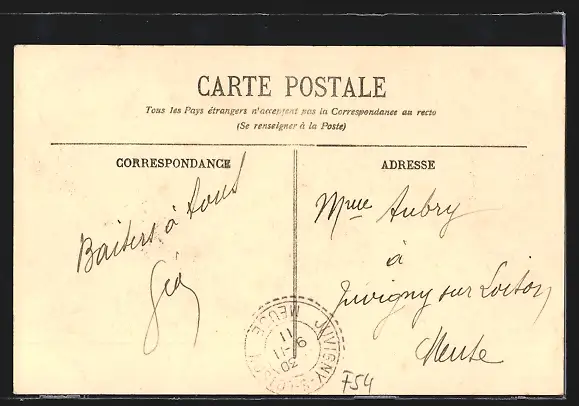 CARTE POSTALE
Tous les Pays étrangers n'acceptent pas la Correspondance au recto
(Se renseigner à la Poste)
CORRESPONDANCE
Baisers à tous
ADRESSE
Mme Aubry
à
Juvigny sur Loison
Meuse
JUVIGNY-S-
MEUSE
30
9-11
11
F54